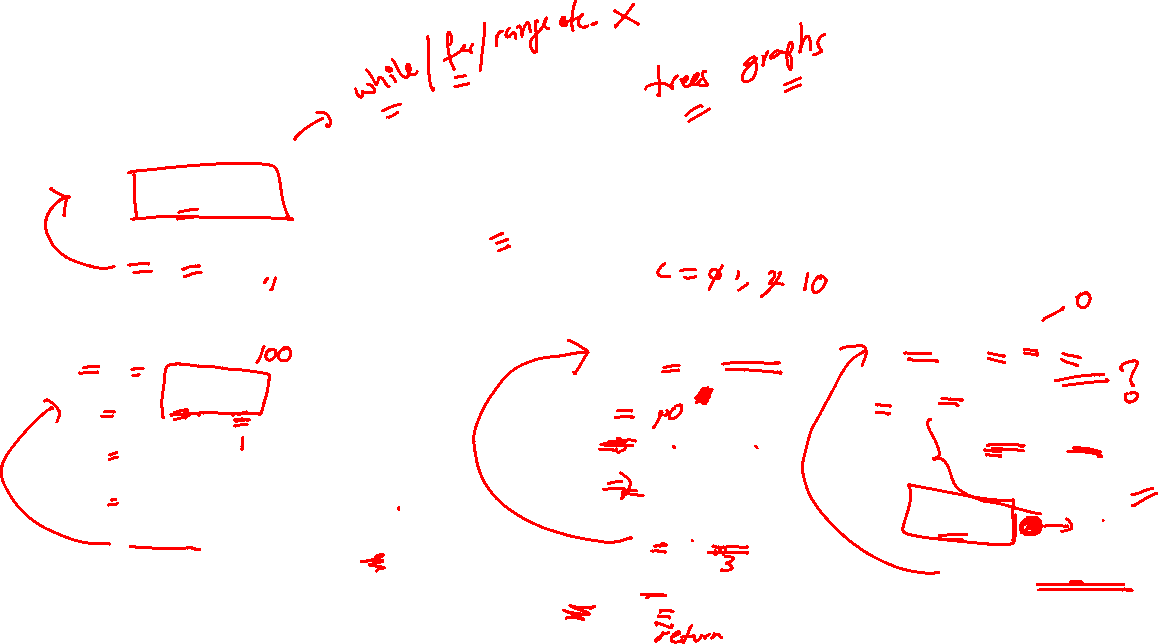 while / for / range etc. X
trees graphs
c = 0, 2 10
0
100
?
10
1
3
return